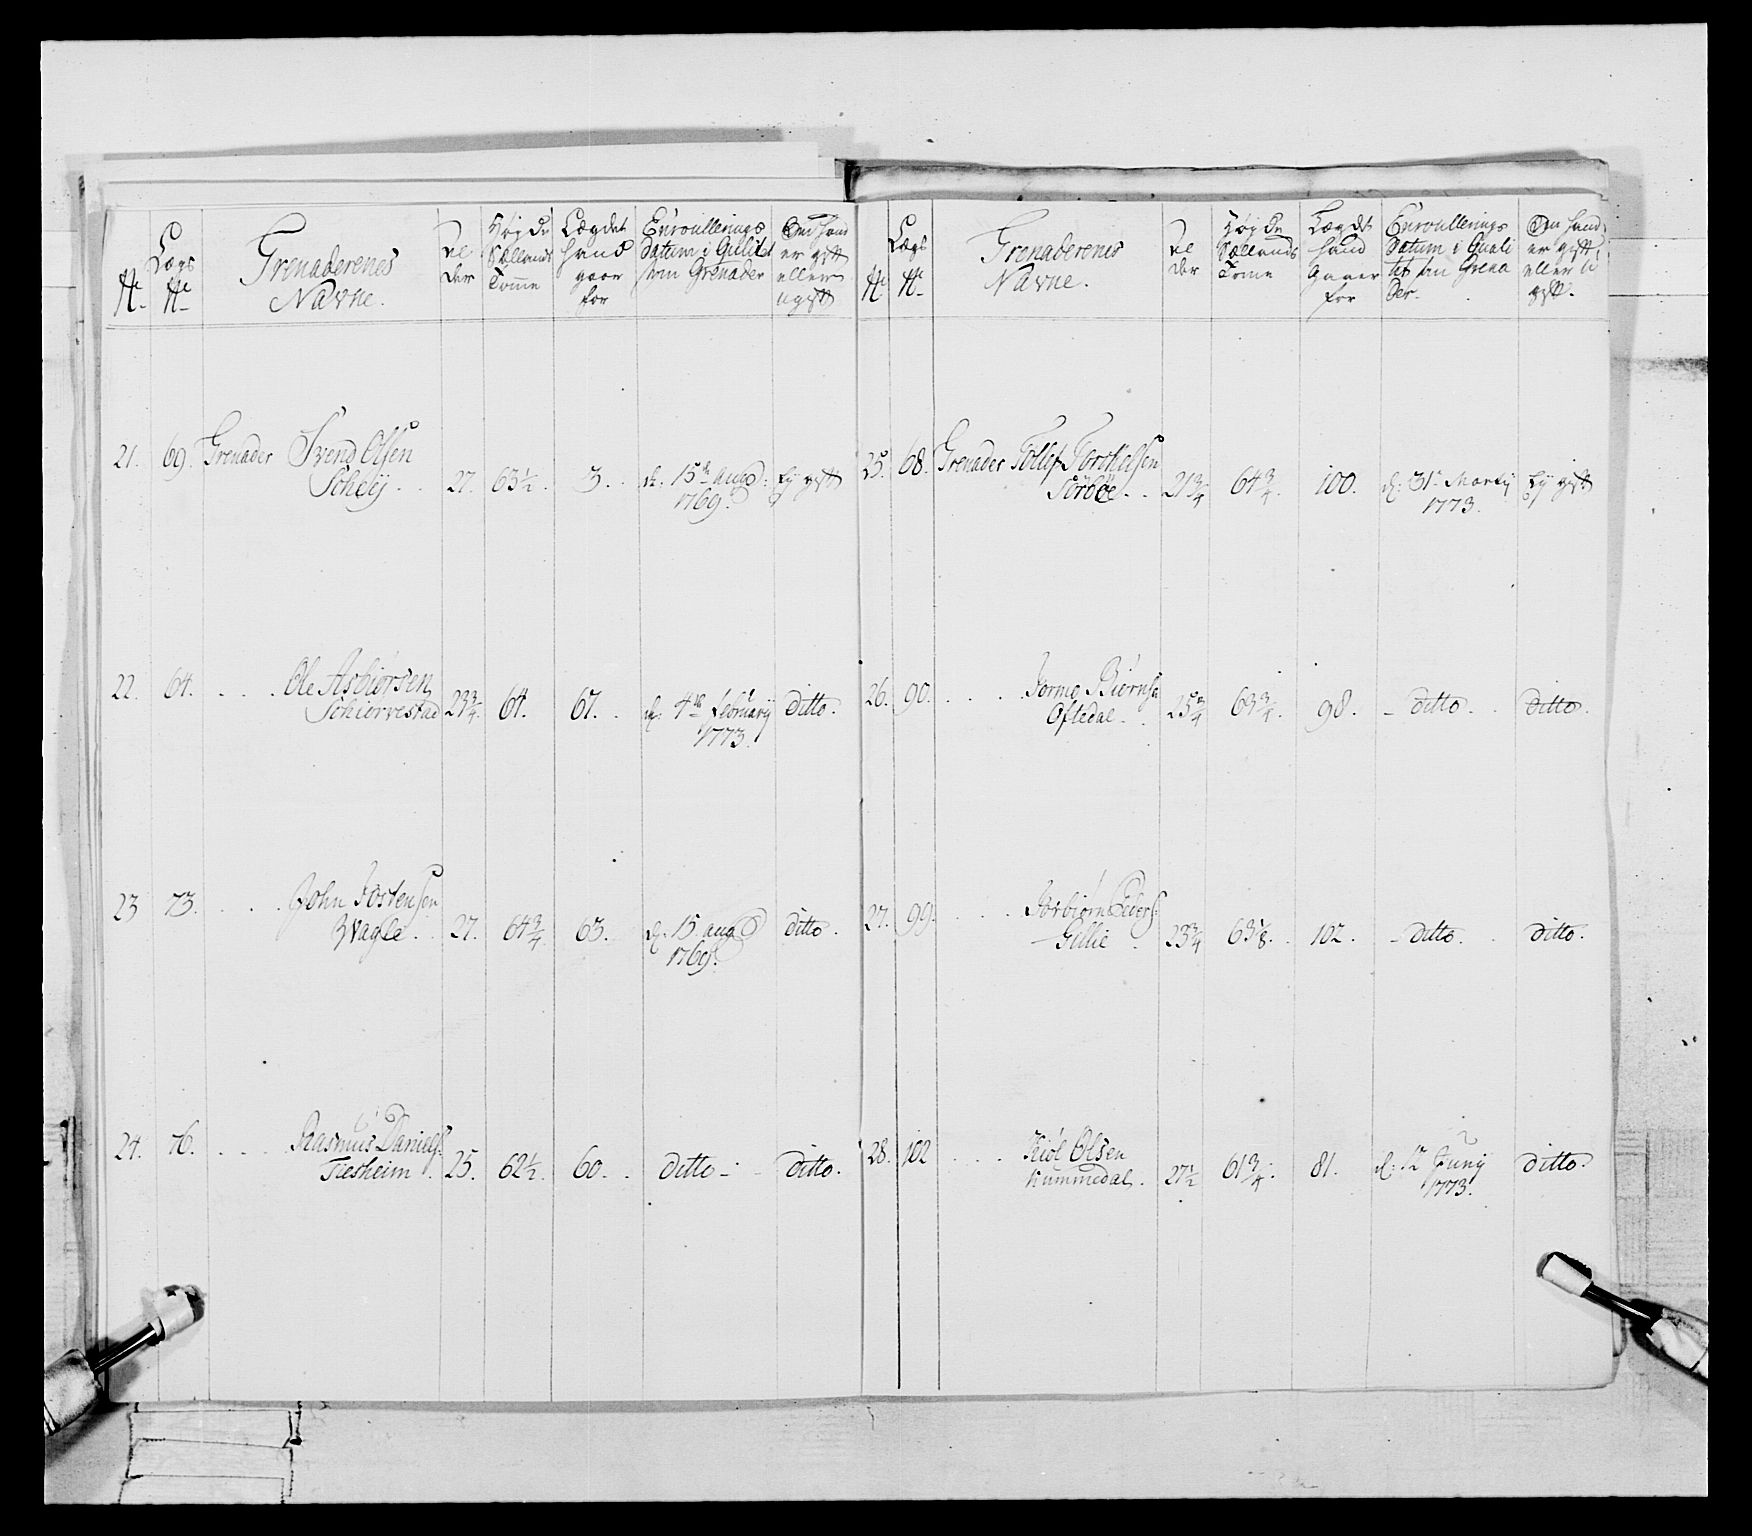 No
Lægs
No
Grenaderenes
Navne.
Al
der
Høyde
Sællands
Tomme
Lægdet
hand
gaar
for
Enroullerings
Datum i Qulitet
som Grenader
Om hand
er gift
eller
ugift
21. 69. Grenader Svend Olsen
Scheij . . 27. 63½. 3. . d. 15de Aug: Ej gift
1769.
22. 64. . . . Ole Asbiørsen
Schiervestad 23¾. 64. 67. . d. 4de Februarij ditto.
1773.
23 73. . . . John Jostensen
Wagle . . 27. 64¾ 63. d. 15. aug ditto.
1769.
24. 76. . . . Rasmus Daniels:
Tiesheim . 25. 62½. 60. . ditto - ditto.
No
Lægs
No
Grenaderenes
Navne.
Al
der
Høyde
Sællands
Tome
Lægdet
hand
Gaaer
for
Enroullerings
Datum i Quali
tet som Grena
der.
Om hand
er gift
eller u
gift.
25. 68. Grenader Tollef Torchelsen
Sörböe. . 21¾ 64¾. 100. d: 31te Martij Ej gift
1773.
26. 90. . . . Jorme Biørns:
Oftedal . . 25¾ 63¾. 98. - ditto . . ditto.
27. 99. . . . Torbiørn Peders:
Gillie . 23¾ 63⅛. 102. - ditto. . ditto.
28. 102 . . . Kiøl Olsen
Hummedal . 27½ 61¾. 81. d: 12 Junij ditto.
1773.